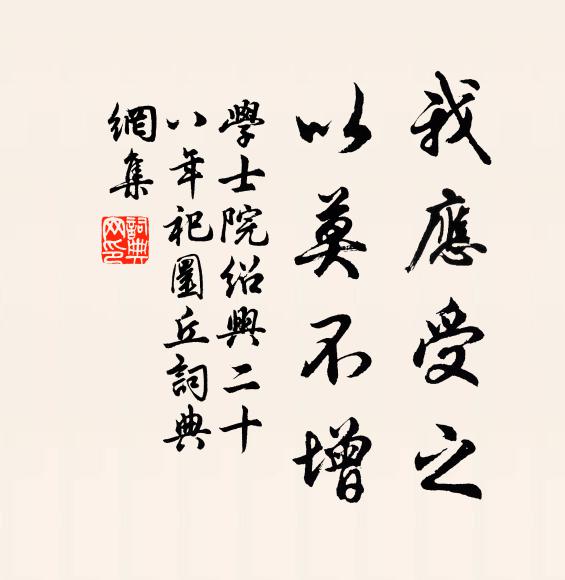 我應受之
以莫不增
學士院紹興二十
八年祀圜丘詞典
網集
詞典
网印